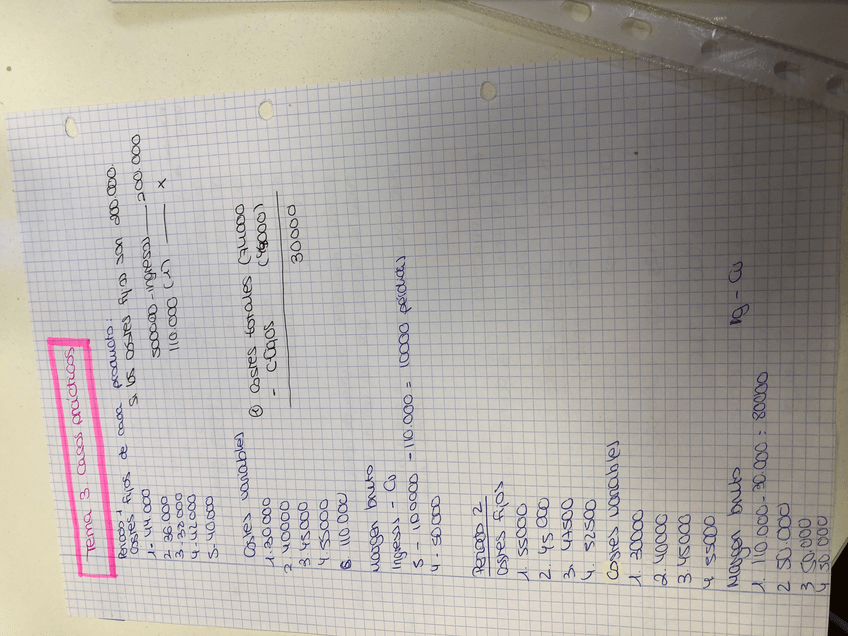 Tema 3. Casos prácticos
Periodo 1
Costes fijos de cada producto:
Si los costes fijos son 200.000.
1- 44.000
500000 - ingresos 200.000
2. 36.000
110.000 (1) x
3. 38000
4 42000
5. 40.000
Costes variables
1. 30000
2. 40000
3. 45000
4 55000
5 110.000
* Costes totales (74000
- CIQOS (44000)
30000
Margen bruto
Ingresos - Cv
5 - 100000 - 110.000 = 10000 pérdidas
4. 50.000
Periodo 2
Costes fijos
1. 55000
2. 45.000
3. 47500
4. 52500
Costes variables
1. 30000
2. 40000
3. 45000
4 55000
Margen bruto Ig - Cv
1. 110.000 - 30.000 = 80000
2 50.000
3 50.000
4 50 000